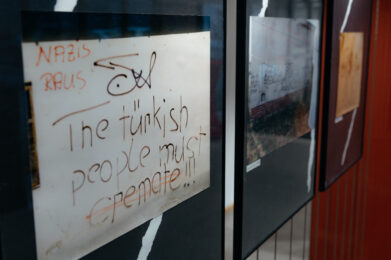 NAZIS
RAUS
The türkish
people must
Cremate!!!